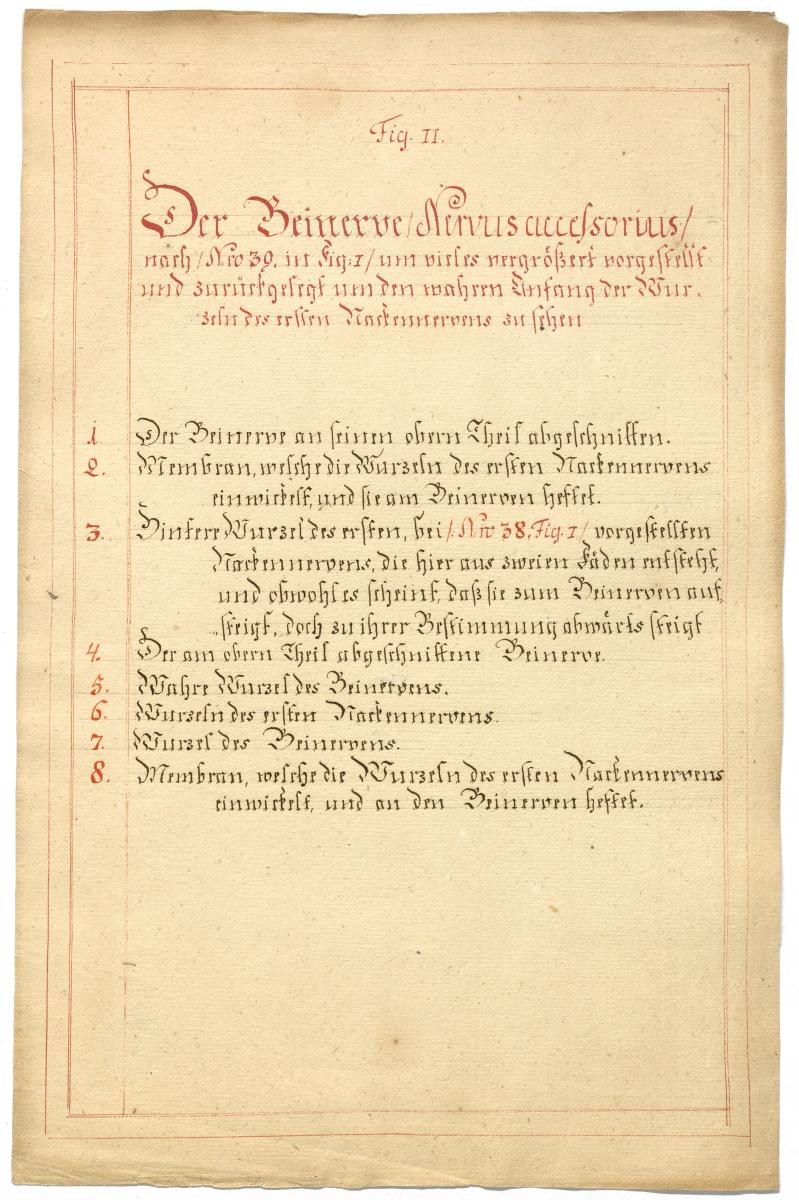 Fig. II.
Der Beinerve /Nervus accessorius/
nach /Nro 39. in Fig: I/ um vieles vergrößert vorgestellt
und zurückgelegt um den wahren Anfang der Wur-
zeln des ersten Nackennervens zu sehen
1 Der Beinerve an seinen obern Theil abgeschnitten.
2. Membran, welche die Wurzeln des ersten Nackennervens
einwickelt, und sie am Beinerven heftet.
3. Hintere Wurzel des ersten, bei /Nro 38. Fig. I/ vorgestellten
Nackennervens, die hier aus zweien Fäden entsteht,
und obwohl es scheint, daß sie zum Beinerven auf-
steigt, doch zu ihrer Bestimmung abwärts steigt
4. Der am obern Theil abgeschnittene Beinerve.
5. Wahre Wurzel des Beinervens.
6. Wurzeln des ersten Nackennervens.
7. Wurzel des Beinervens.
8. Membran, welche die Wurzeln des ersten Nackennervens
einwickelt, und an den Beinerven heftet.